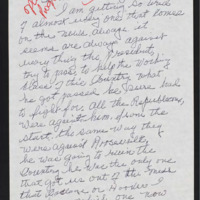 I am getting so tired
of almost every one that comes
on the news always it
seems are always against
every thing the President
try to pass to help the working
class of this Country what
he got passed he sure had
to fight for All the Republicans
were against him from the
start, the same way they
were against Roosevelt
he was going to ruin the
Country he was the only one
that got us out of the mess
that Hoover or Hoover
one now